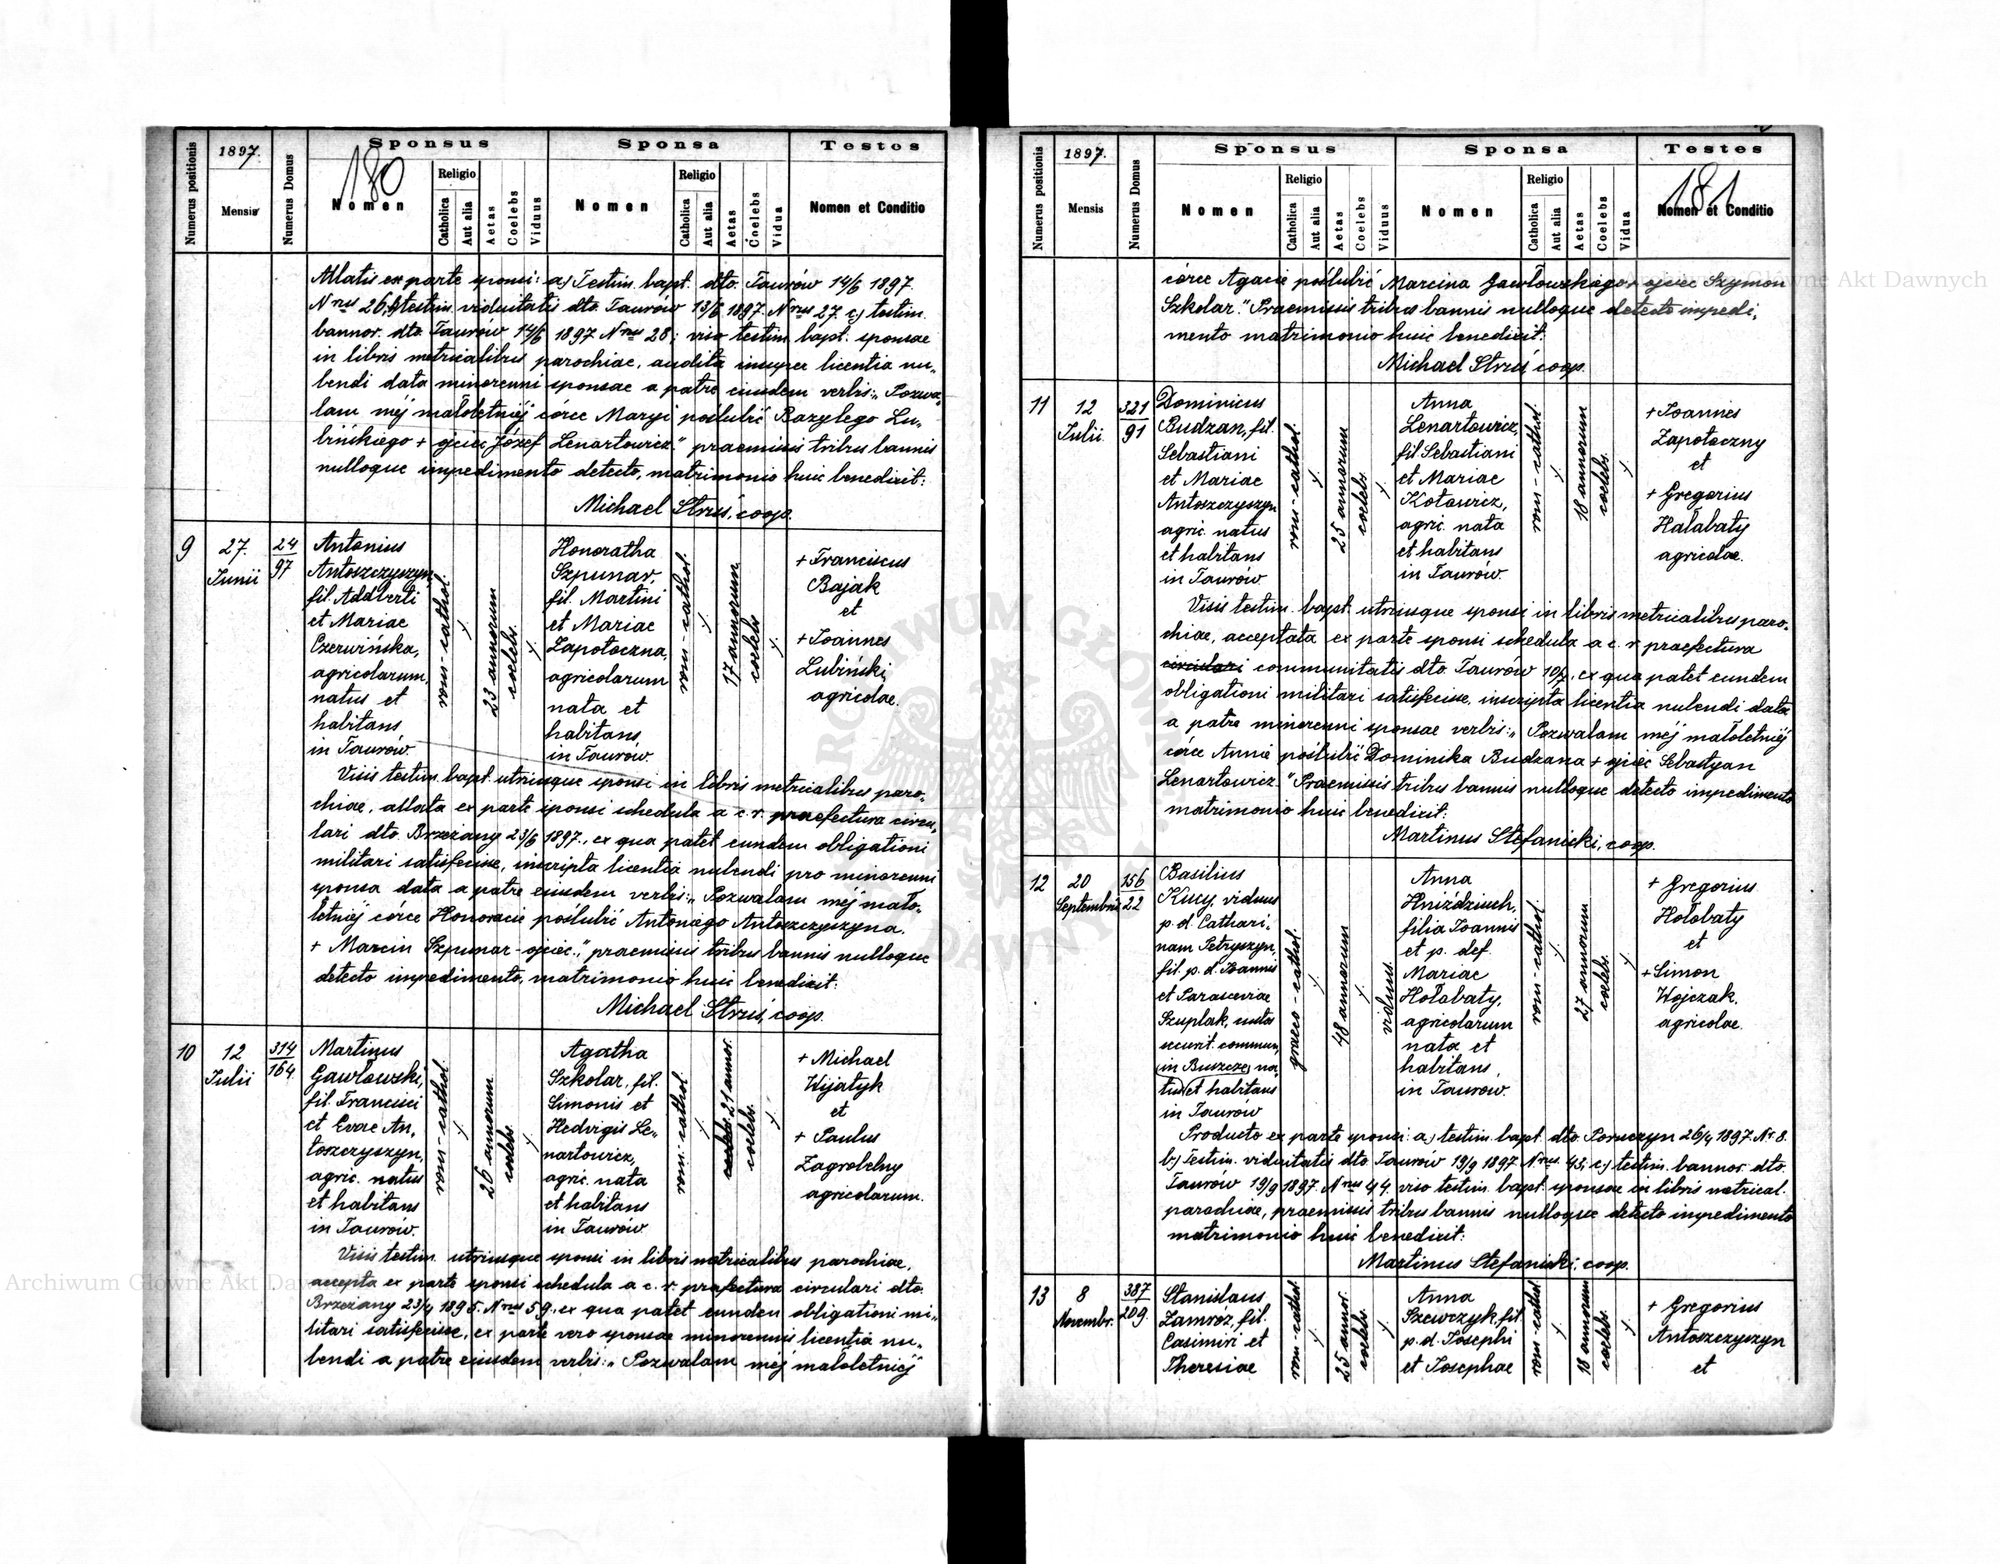 Numerus positionis
1897.
Mensis
Numerus Domus
Sponsus
180
Nomen
Religio
Catholica
Aut alia
Aetas
Coelebs
Viduus
Sponsa
Nomen
Religio
Catholica
Aut alia
Aetas
Coelebs
Vidua
Testes
Nomen et Conditio
Allatis ex parte sponsi: a) Testim. bapt. dto. Taurów 14/6 1897.
Nrus 26, b) testim. viduitatis dto. Taurów 13/6 1897. Nrus 27. c) testim.
bannor. dto. Taurów 14/6 1897 Nrus 28; viso testim. bapt. sponsae
in libris metricalibus parochiae, audita insuper licentia nu„
bendi data minorenni sponsae a patre eiusdem verbis: „Pozwa„
lam mej małoletniej córce Maryi poślubić Bazylego Lu„
bińskiego + ojciec Józef Lenartowicz." praemissis tribus bannis
nulloque impedimento detecto, matrimonio huic benedixit:
Michael Struś, coop.
9
27.
Junii
24
97
Antonius
Antoszczyszyn,
fil. Adalberti
et Mariae
Czerwińska,
agricolarum,
natus et
habitans
in Taurów.
rom-cathol.
23 annorum
coelebs.
Honoratha
Szpunar,
fil. Martini
et Mariae
Zapotoczna,
agricolarum
nata et
habitans
in Taurów.
rom-cathol.
17 annorum
coelebs
+ Franciscus
Bajak
et
+ Joannes
Lubiński,
agricolae.
Visis testim. bapt. utriusque sponsi in libris metricalibus paro„
chiae, allata ex parte sponsi schedula a c. r. praefectura circu„
lari dto. Brzeżany 23/6 1897., ex qua patet eundem obligationi
militari satisfecisse, inscripta licentia nubendi pro minorenni
sponsa data a patre eiusdem verbis: „Pozwalam mej mało„
letniej córce Honoracie poślubić Antoniego Antoszczyszyna.
+ Marcin Szpunar - ojciec.", praemissis tribus bannis nulloque
detecto impedimento, matrimonio huic benedixit:
Michael Struś, coop.
10
12
Julii
314
164
Martinus
Gawłowski,
fil. Francisci
et Evae An„
toszczyszyn,
agric. natus
et habitans
in Taurów.
rom-cathol.
26 annorum
coelebs.
Agatha
Szkolar, fil.
Simonis et
Hedvigis Le„
nartowicz,
agric. nata
et habitans
in Taurów.
rom-cathol.
21 annor.
coelebs.
+ Michael
Wijatyk
et
+ Paulus
Zagrobelny
agricolarum.
Visis testim. utriusque sponsi in libris metricalibus parochiae,
accepta ex parte sponsi schedula a c. r. prafectura circulari dto.
Brzeżany 23/4 1895. Nrus 59., ex qua patet eunden obligationi mi„
litari satisfecisse, ex parte vero sponsae minorennis licentia nu„
bendi a patre eiusdem verbis: „Pozwalam mej małoletniej
Numerus positionis
1897.
Mensis
Numerus Domus
Sponsus
Nomen
Religio
Catholica
Aut alia
Aetas
Coelebs
Viduus
Sponsa
Nomen
Religio
Catholica
Aut alia
Aetas
Coelebs
Vidua
Testes
181
Nomen et Conditio
córce Agacie poślubić Marcina Gawłowskiego + ojciec Szymon
Szkolar." Praemissis tribus bannis nulloque detecto impedi„
mento matrimonio huic benedixit:
Michael Struś, coop.
11
12
Julii.
321
91
Dominicus
Budzan, fil.
Sebastiani
et Mariae
Antoszczyszyn
agric. natus
et habitans
in Taurów.
rom-cathol.
25 annorum
coelebs.
Anna
Lenartowicz,
fil. Sebastiani
et Mariae
Kotowicz,
agric. nata
et habitans
in Taurów.
rom-cathol.
18 annorum
coelebs.
+ Joannes
Zapotoczny
et
+ Gregorius
Hałabaty
agricolae.
Visis testim. bapt. utriusque sponsi in libris metricalibus paro„
chiae, acceptata ex parte sponsi schedula a c. r. praefectura
circulari communitatis dto. Taurów 10/7, ex qua patet eundem
obligationi militari satisfecisse, inscripta licentia nubendi data
a patre minorenni sponsae verbis: „Pozwalam mej małoletniej
córce Annie poślubić Dominika Budzana + ojciec Sebastyan
Lenartowicz." Praemissis tribus bannis nulloque detecto impedimento
matrimonio huic benedixit:
Martinus Stefanicki, coop.
12
20
Septembris
156
22
Basilius
Kucy, viduus
p. d. Cathari„
nam Petryszyn,
fil. p. d. Joannis
et Parasceviae
Szuplak, custos
securit. commun.
in Buszcze, na„
tus et habitans
in Taurów
graeco-cathol.
48 annorum
viduus.
Anna
Hniździuch,
filia Joannis
et p. def.
Mariae
Hołobaty,
agricolarum
nata et
habitans,
in Taurów.
rom-cathol.
27 annorum
coelebs.
+ Gregorius
Hołobaty
et
+ Simon
Wojczak.
agricolae.
Producto ex parte sponsi: a) testim. bapt. dto. Poruczyn 26/4 1897. Nr. 8.
b.) Testim. viduitatis dto. Taurów 19/9 1897. Nrus. 43, c.) testim. bannor. dto.
Taurów 19/9 1897. Nrus 44. viso testim. bapt. sponsae in libris metrical.
parochiae, praemissis tribus bannis nulloque detecto impedimento
matrimonio huic benedixit:
Martinus Stefanicki, coop.
13
8
Novembr.
387
209.
Stanislaus
Zamróz, fil.
Casimiri et
Theresiae
rom-cathol.
25 annor.
coelebs.
Anna
Szewczyk fil.
p. d. Josephi
et Josephae
rom-cathol
18 annorum
coelebs.
+ Gregorius
Antoszczyszyn
et
Archiwum Główne Akt Dawnych
Archiwum Główne Akt Dawnych
ARCHIWUM GŁÓWNE AKT DAWNYCH